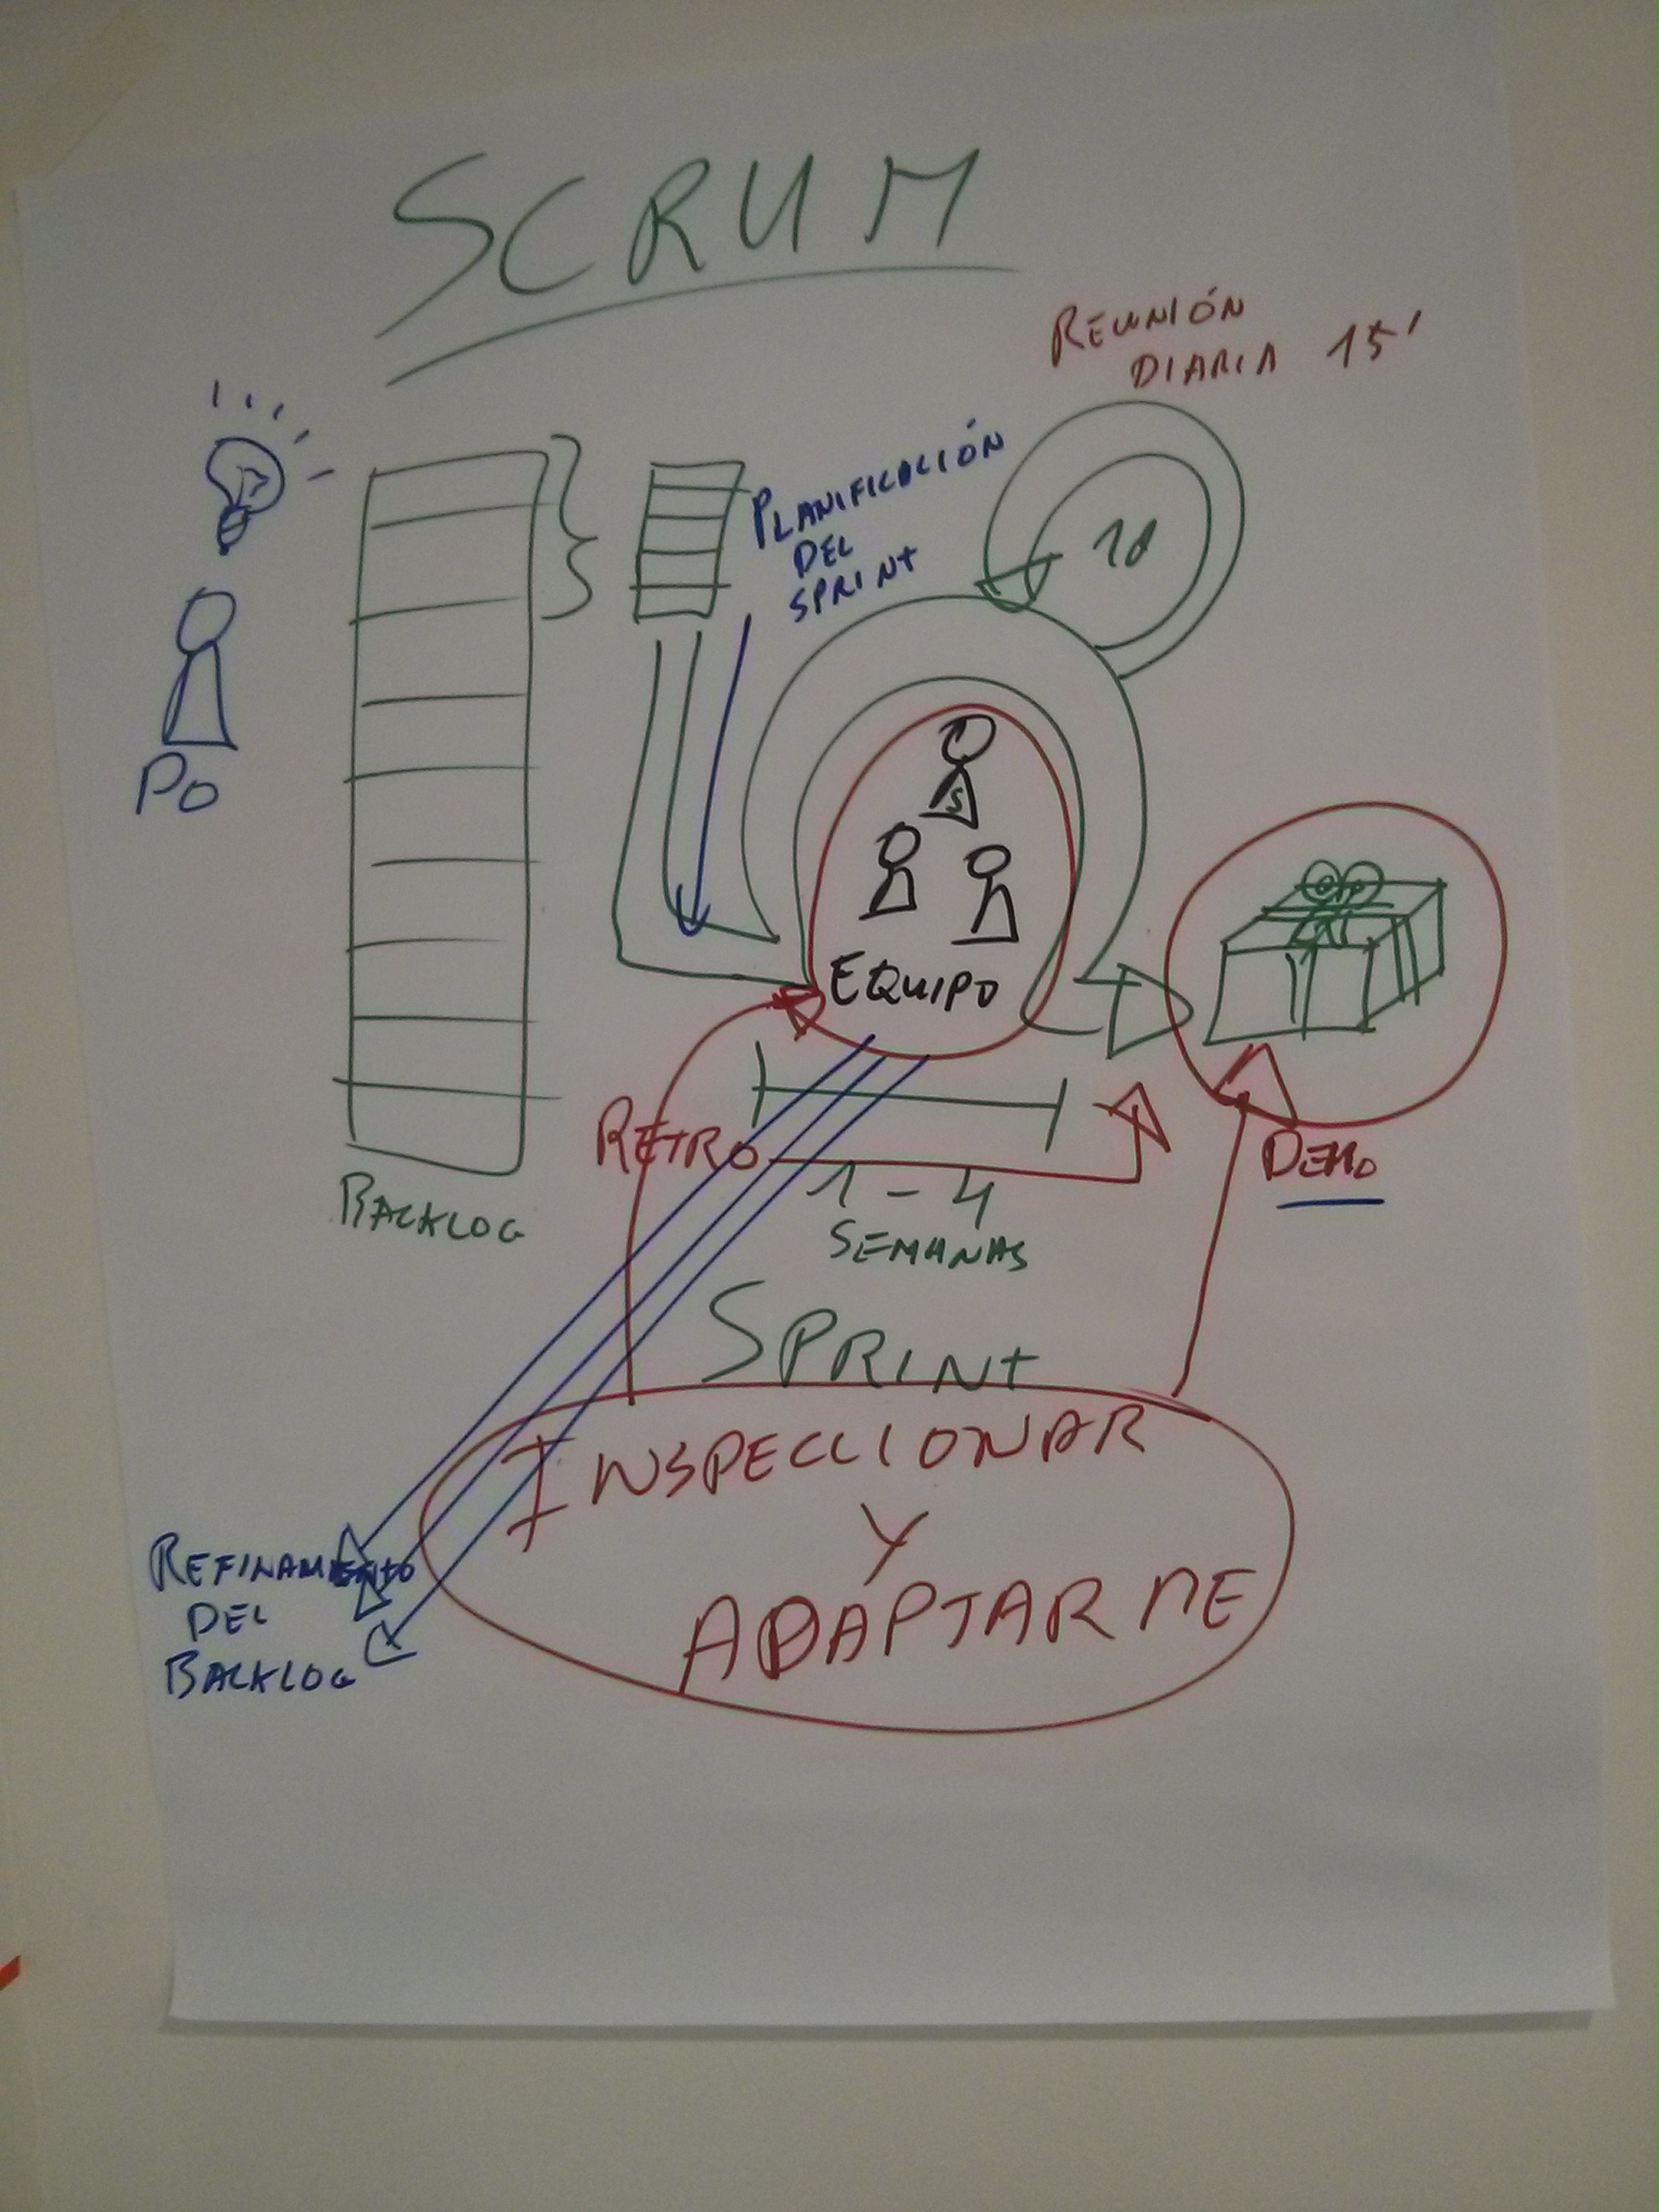 SCRUM
REUNIÓN
DIARIA 15'
PLANIFICACIÓN
DEL
SPRINT
1d
PO
S
EQUIPO
RETRO
DEMO
1-4
SEMANAS
BACKLOG
SPRINT
INSPECCIONAR
Y
ADAPTARME
REFINAMIENTO
DEL
BACKLOG